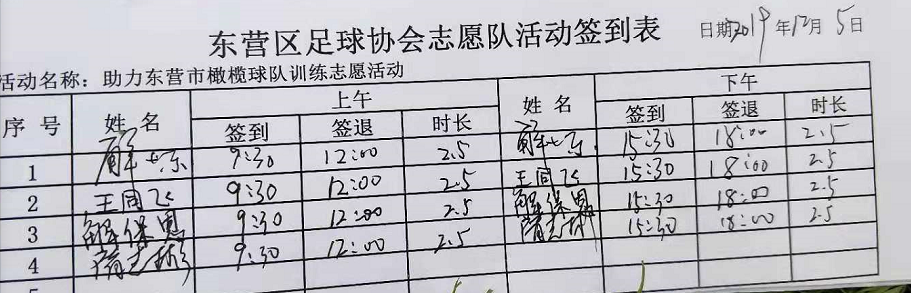 东营区足球协会志愿队活动签到表 日期2019年12月5日
活动名称：助力东营市橄榄球队训练志愿活动
序号 姓名 上午 姓名 下午
签到 签退 时长 签到 签退 时长
1 9:30 12:00 2.5 15:30 18:00 2.5
2 王同飞 9:30 12:00 2.5 王同飞 15:30 18:00 2.5
3 解保恩 9:30 12:00 2.5 解保恩 15:30 18:00 2.5
4 9:30 12:00 2.5 15:30 18:00 2.5